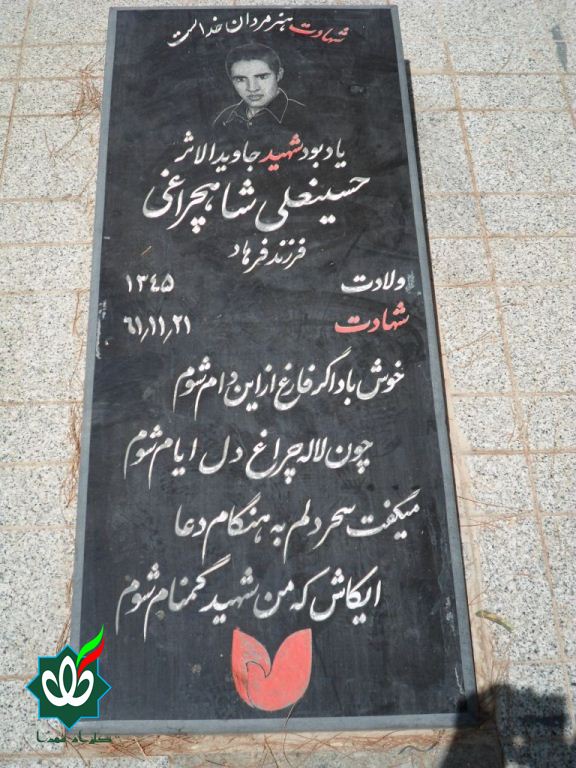 شهادت هنر مردان خداست
یادبود شهید جاویدالاثر
حسینعلی شاهچراغی
فرزند فرهاد
ولادت ۱۳۴۵
شهادت ۶۱٫۱۱٫۲۱
خوش باد اگر فارغ از این دام شوم
چون لاله چراغ دل ایام شوم
میگفت سحر دلم به هنگام دعا
ایکاش که من شهید گمنام شوم